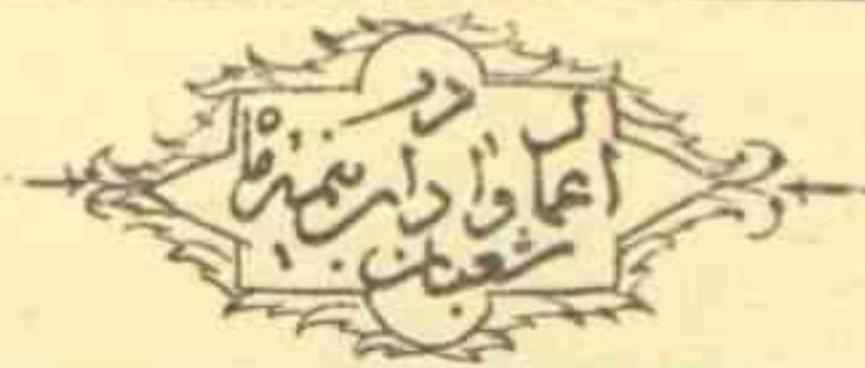 در
اعمال وآداب نیمه ماه
شعبان